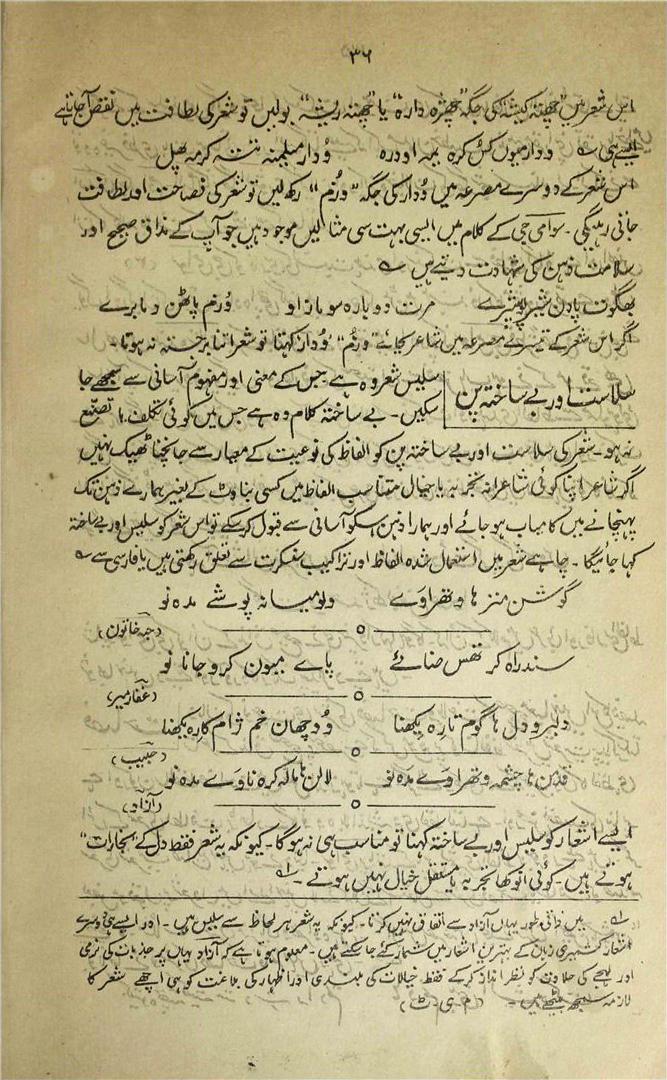 ۳۶
اس شعر میں "چھتہ کیشہ" کی جگہ "چھژہ دارہ" یا "چھتہ ریشہ" بولیں تو شعر کی لطافت میں نقص آجاتا ہے
ایسے ہی ؎ ودار میون کس کرہ یمہ اودرہ ودار میلمنہ نتہ کرمہ پھل
اس شعر کے دوسرے مصرعہ میں وُدار کی جگہ "وزُم" رکھ لیں تو شعر کی فصاحت اور لطافت
جاتی رہیگی۔ سوامی جی کے کلام میں ایسی بہت سی مثالیں موجود ہیں جو آپ کے مذاق صحیح اور
سلامت ذہن کی شہادت دیتے ہیں ؎
بھگوت پادن شیر مرت دوبارہ سوماز او وُزم پاٹھن دما برے
اگر اس شعر کے تیسرے مصرعہ میں شاعر بجائے "وزُم" وُدار کہتا تو شعر اتنا برجستہ نہ ہوتا۔
سلاست اور بے ساختہ پن
سلیس شعر وہ ہے جس کے معنی اور مفہوم آسانی سے سمجھے جا
سکیں۔ بے ساختہ کلام وہ ہے جس میں کوئی تکلف یا تصنع
نہ ہو۔ شعر کی سلاست اور بے ساختہ پن کو الفاظ کی نوعیت کے معیار سے جانچنا ٹھیک نہیں
اگر شاعر اپنا کوئی شاعرانہ تجربہ یا خیال متناسب الفاظ میں کسی بناوٹ کے بغیر ہمارے ذہن تک
پہنچانے میں کامیاب ہو جائے اور ہمارا ذہن اسکو آسانی سے قبول کر سکے تو اس شعر کو سلیس اور بے ساختہ
کہا جائیگا۔ چاہے شعر میں استعمال شدہ الفاظ اور تراکیب سنسکرت سے تعلق رکھتی ہیں یا فارسی سے ؎
گوشن منز ہا وتھراوے ولو میانہ پوشے مدہ نو
(حبہ خاتون)
سندراہ کر تھس ضائے پاے میون کرو جانا نو
(غفار میر)
دلبرو دل ہا گوم تارہ یکھنا وُدچھان خم ژام کارہ یکھنا
(حبیب)
قدمن ہا چشمہ وتھراوے مدہ نو لالن ہا مالہ کرہ ناوے مدہ نو
(آزاد)
ایسے اشعار کو سلیس اور بے ساختہ کہنا تو مناسب ہی نہ ہوگا۔ کیونکہ یہ شعر فقط دل کے "بخارات"
ہوتے ہیں۔ کوئی انوکھا تجربہ یا مستقل خیال نہیں ہوتے۔ ؎۱
؎۱ میں ذاتی طور یہاں آزاد سے اتفاق نہیں کرتا۔ کیونکہ یہ شعر ہر لحاظ سے سلیس ہیں۔ اور ایسے ہی دوسرے
اشعار کشمیری زبان کے بہترین اشعار میں شمار کئے جا سکتے ہیں۔ معلوم ہوتا ہے کہ آزاد یہاں پر جذبات کی نرمی
اور لہجے کی حلاوت کو نظر انداز کر کے فقط خیالات کی بلندی اور اظہار کی بلاغت کو ہی اچھے شعر کا
لازمہ سمجھ بیٹھے ہیں۔ (م۔ی۔ٹ)